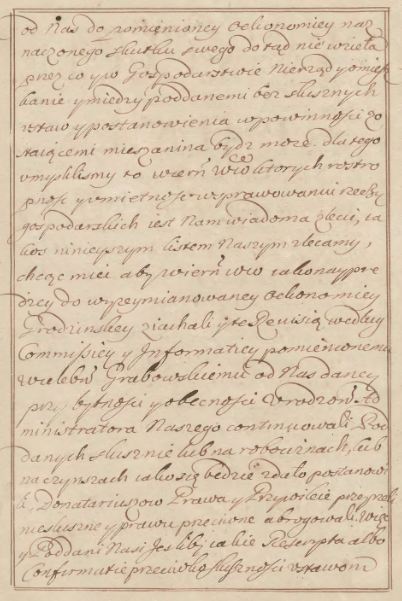 od Nas do pomienioney Oekonomiey naz
naczonego skutku swego dotąd nie wzieła
przez co y w Gospodarstwie Nierząd y omięsz
kanie y między poddanemi bez słusznych
ustaw y postanowienia w powinności zo
staiącemi mieszanina bydz moze. dla tego
umysliliśmy to wiern̄ Ww̄ ktorych rostro
pność y umieiętność w sprawowaniu rzeczy
gospodarskich iest Nam wiadoma zlecić, ia
koż ninieyszym listem Naszym zlecamy,
chcąc mieć aby wiern̄ Ww̄ iako naypre
dzey do wyzeymianowaney Oekonomiey
Grodzinskiey ziachali y te Rewisią według
Commissiey y Informatiey pomienionemu
Wielebn̄ Grabowskiemu od Nas daney
przy bytności y obecności Urodzon̄ Ad
ministratora Naszego continuowali Pod
danych słusznie lub na robociznach, lub
na czynszach iako się będzie zdało postanowi
li, Donatariuszow Prawa y Przywileie przeyrzeli
niesłuszne y prawu przeciwne abrogowali. Więc
y Poddani Nasi Jesliby iakie Rescripta albo
Confirmatie przeciwko słuszności ustawom